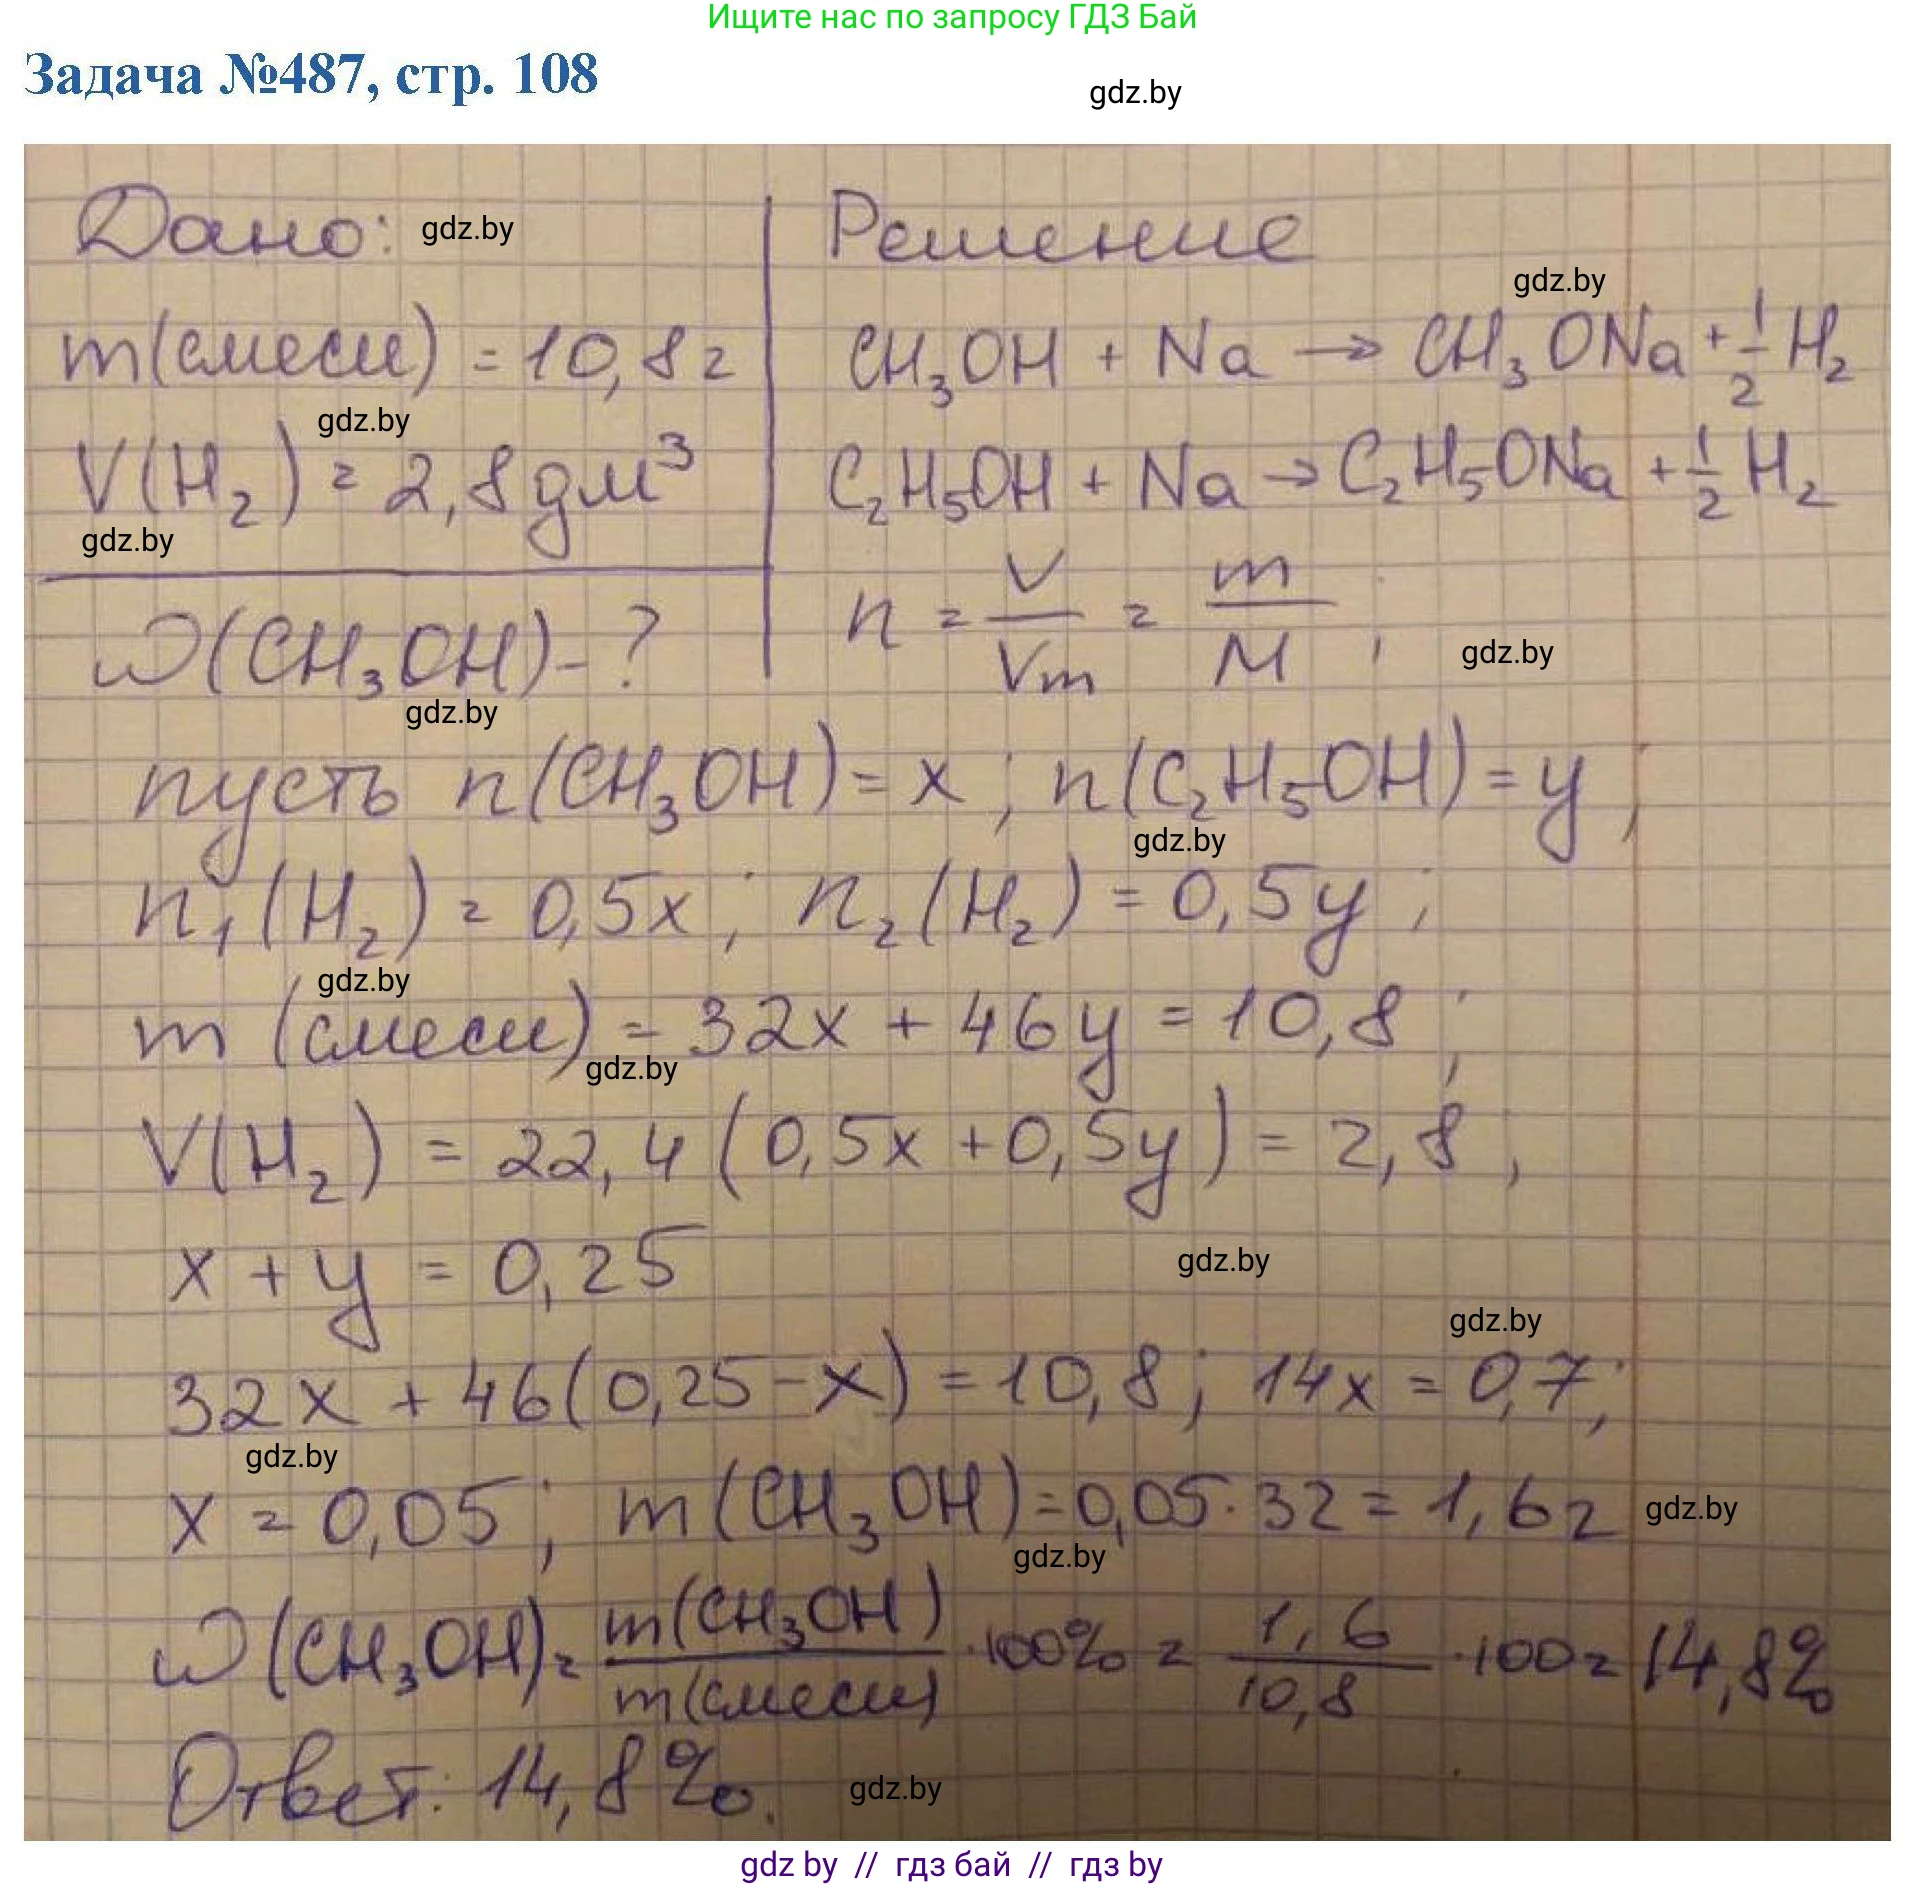 Ищите нас по запросу ГДЗ Бай
Задача №487, стр. 108
gdz.by
Дано: gdz.by
m(смеси) = 10,8г
gdz.by
V(H₂) = 2,8дм³
gdz.by
ω(CH₃OH) - ?
gdz.by
Решение
gdz.by
CH₃OH + Na → CH₃ONa + 1/2 H₂
C₂H₅OH + Na → C₂H₅ONa + 1/2 H₂
n = V/Vm = m/M ;
gdz.by
пусть n(CH₃OH) = x ; n(C₂H₅OH) = y ;
gdz.by
n₁(H₂) = 0,5x ; n₂(H₂) = 0,5y ;
gdz.by
m (смеси) = 32x + 46y = 10,8 ;
gdz.by
V(H₂) = 22,4 (0,5x + 0,5y) = 2,8 ;
x + y = 0,25
gdz.by
gdz.by
32x + 46(0,25 - x) = 10,8 ; 14x = 0,7 ;
gdz.by
x = 0,05 ; m (CH₃OH) = 0,05 · 32 = 1,6г gdz.by
gdz.by
ω (CH₃OH) = m(CH₃OH)/m(смеси) · 100% = 1,6/10,8 · 100 = 14,8%
Ответ: 14,8%. gdz.by
gdz by // гдз бай // гдз by